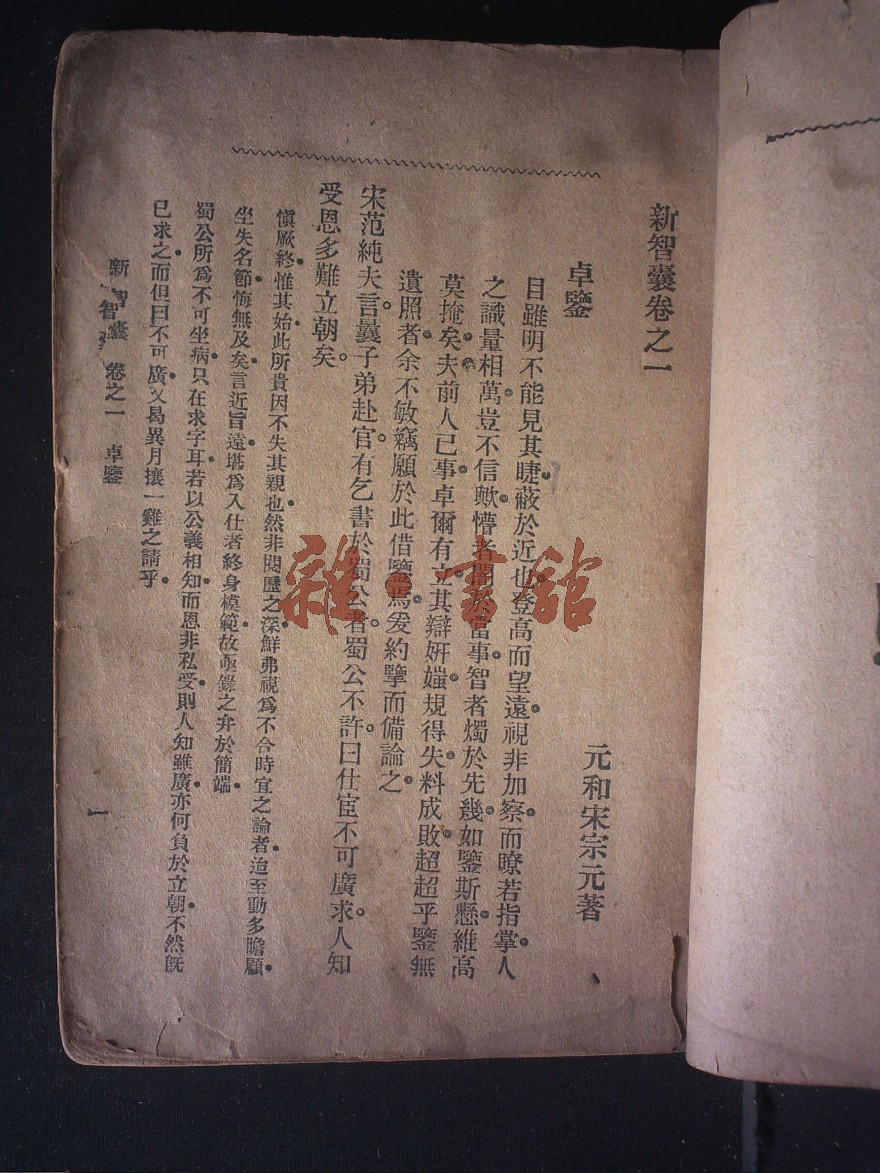 新智囊卷之一
卓鑒 元和宋宗元著
目雖明不能見其睫蔽於近也登高而望遠視非加察而瞭若指掌人
之識量相萬豈不信歟懵者闇於當事智者燭於先幾如鑒斯懸維高
莫掩矣夫前人已事卓爾有立其辯妍媸規得失料成敗超超乎鑒無
遺照者余不敏竊願於此借鑒焉爰約擧而備論之
宋范純夫言曩子弟赴官有乞書於蜀公者蜀公不許曰仕宦不可廣求人知
受恩多難立朝矣
愼厥終惟其始此所貴因不失其親也然非閱歷之深鮮弗視爲不合時宜之論者迨至動多瞻顧
坐失名節悔無及矣言近旨遠堪爲入仕者終身模範故亟錄之弁於簡端
蜀公所爲不可坐病只在求字耳若以公義相知而恩非私受則人知雖廣亦何負於立朝不然旣
已求之而但曰不可廣又曷異月攘一雞之請乎
新智囊 卷之一 卓鑒 一
雜·書舘